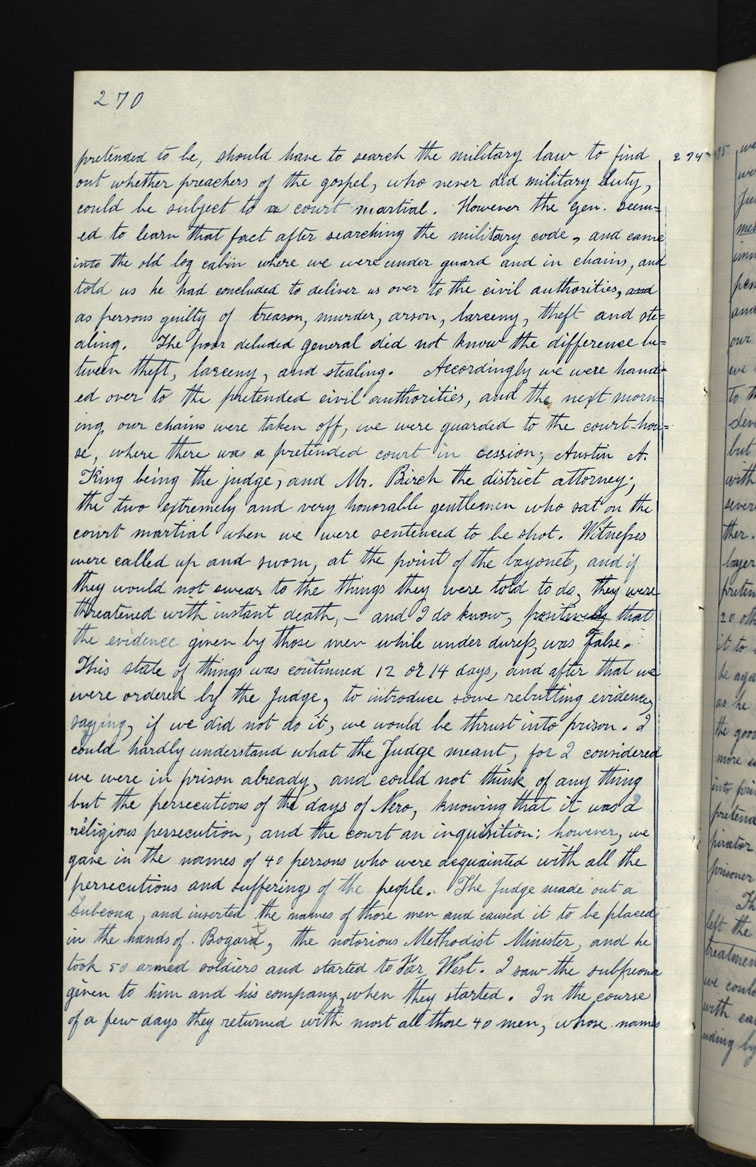 270
pretended to be, should have to search the military law to find
274
out whether preachers of the gospel, who never did military duty,
could be subject to a court martial. However the Gen. seem=
ed to learn that fact after searching the military code, and came
into the old log cabin where we were under guard and in chains, and
told us he had concluded to deliver us over to the civil authorities, and
as persons guilty of treason, murder, arson, larceny, theft and ste=
aling. The poor deluded general did not know the difference be=
tween theft, larceny, and stealing. Accordingly we were hand=
ed over to the pretended civil authorities, and the next morn=
ing our chains were taken off, we were guarded to the court-hou=
se, where there was a pretended court in cession; Austin A.
King being the judge, and Mr. Birch the district attorney;
the two extremely and very honorable gentlemen who sat on the
court martial when we were sentenced to be shot. Witnesses
were called up and sworn, at the point of the bayonet, and if
they would not swear to the things they were told to do, they were
threatened with instant death, – and I do know, positively that
the evidence given by those men while under duress, was false.
This state of things was continued 12 or 14 days, and after that we
were ordered by the Judge, to introduce some rebutting evidence,
saying, if we did not do it, we would be thrust into prison. I
could hardly understand what the Judge meant, for I considered
we were in prison already, and could not think of any thing
but the persecutions of the days of Nero, knowing that it was a
religious persecution, and the court an inquisition: however, we
gave in the names of 40 persons who were acquainted with all the
persecutions and sufferings of the people. The Judge made out a
subeona, and inserted the names of those men and caused it to be placed
in the hands of Bogard, the notorious Methodist Minister, and he
took 50 armed soldiers and started to Far West. I saw the subpeona
given to him and his company, when they started. In the course
of a few days they returned with most all those 40 men, whose names